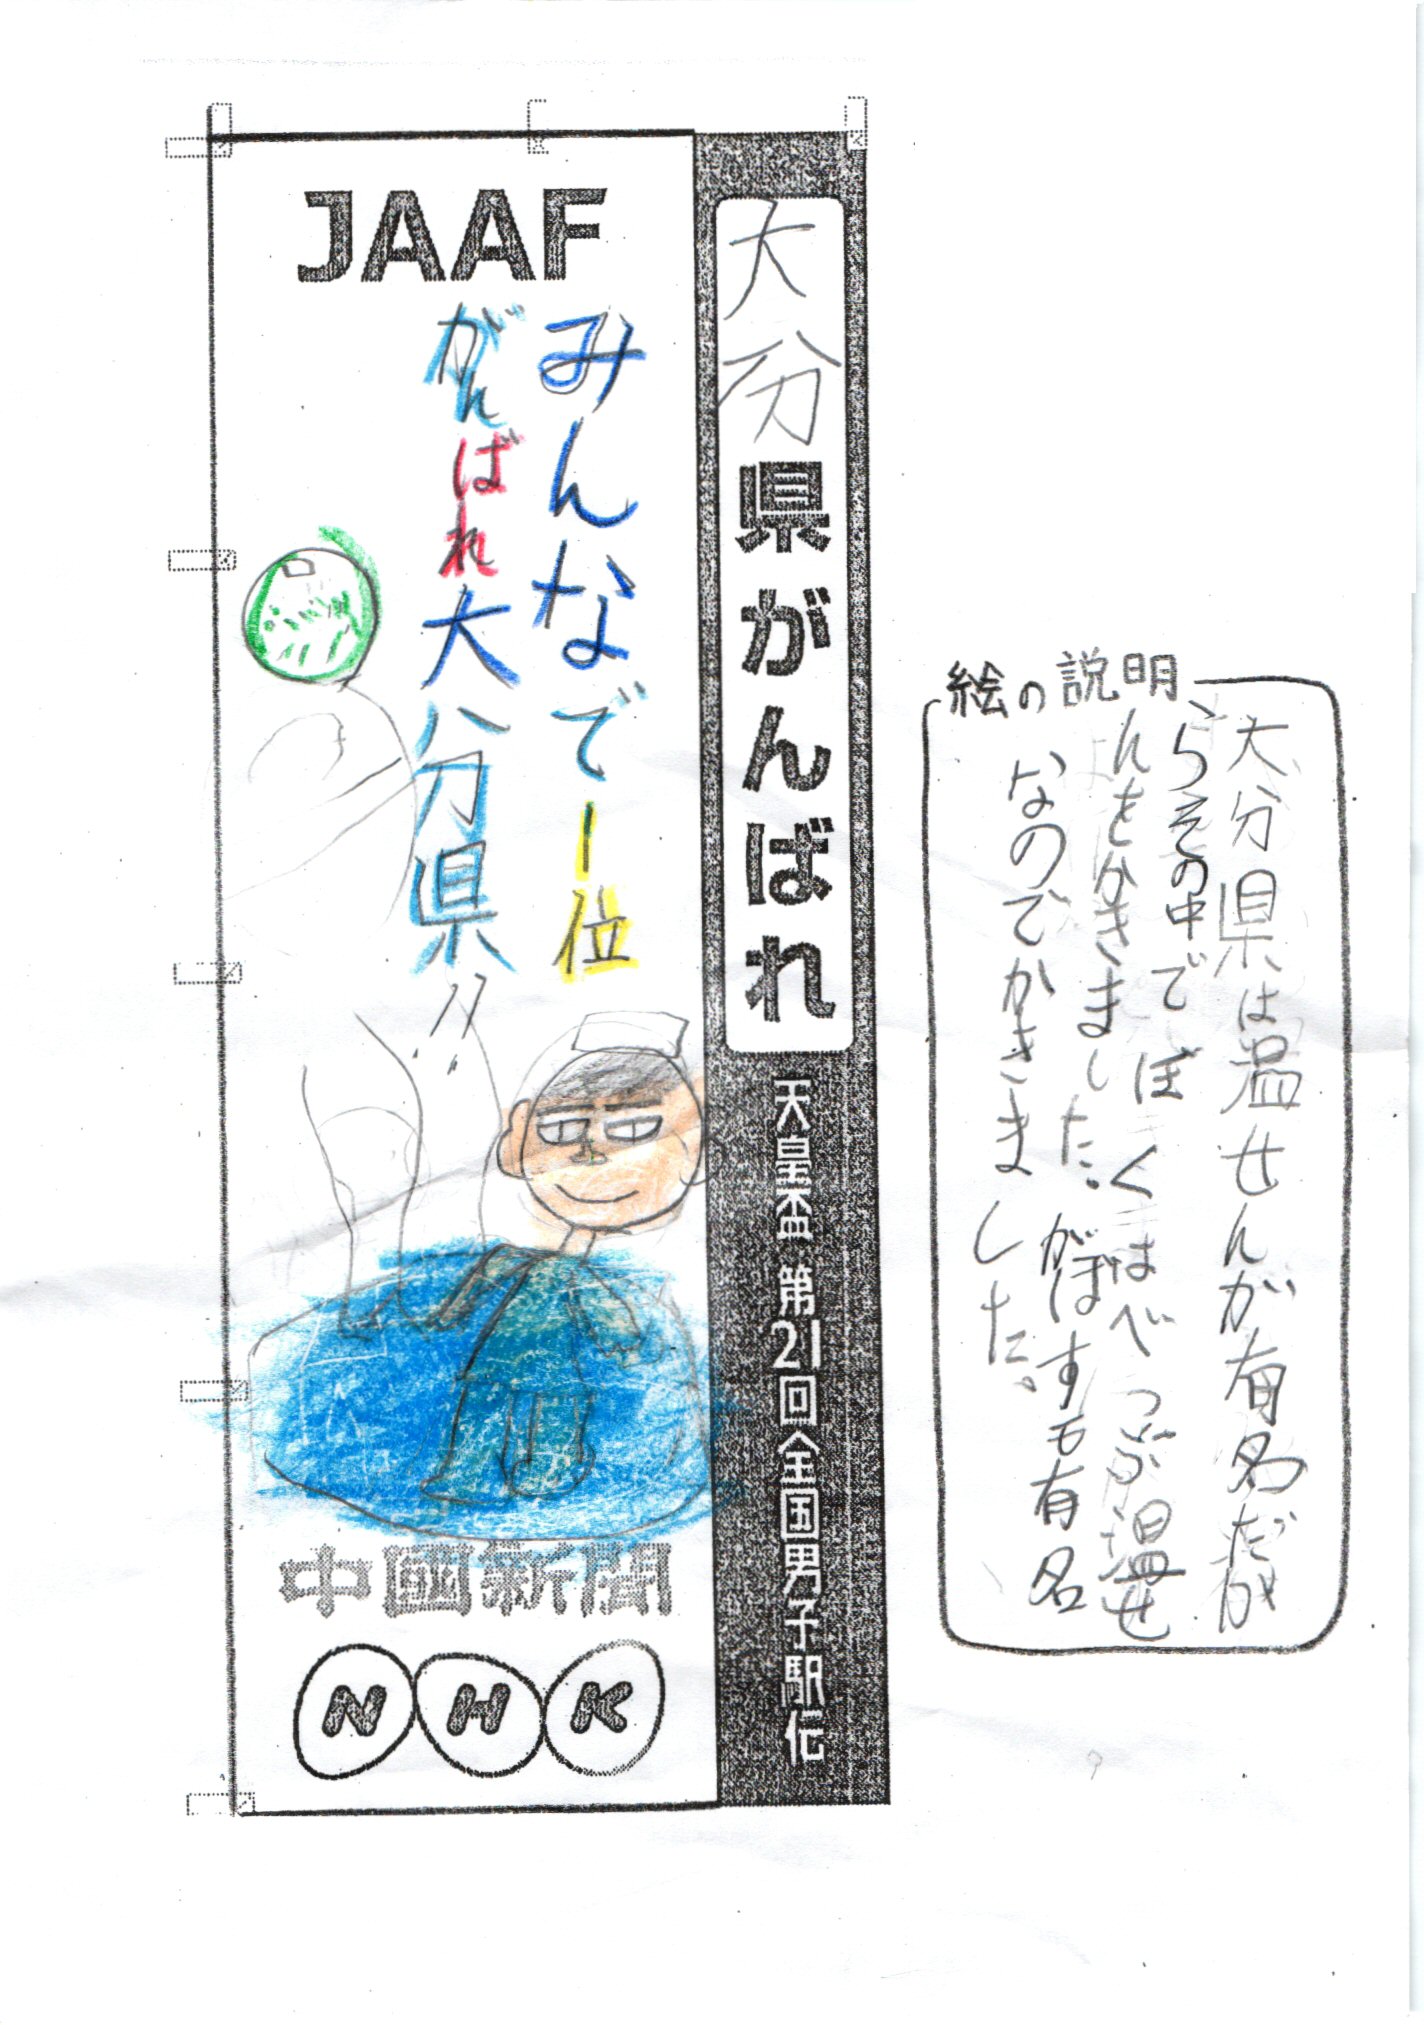 JAAF
みんなで一位
がんばれ大分県!!
大分県がんばれ
天皇盃 第21回全国男子駅伝
中國新聞
NHK
絵の説明
大分県は温せんが有名だか
らその中でぼくはべっぷ温せ
んをかきました。がぼすも有名
なのでかきました。